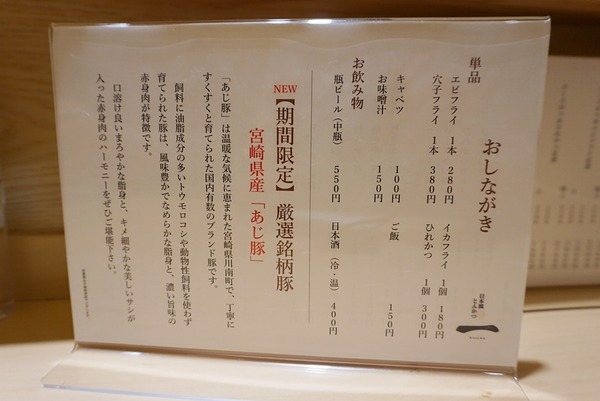 おしながき
日本橋
とんかつ
一
単品
エビフライ 1本 280円
イカフライ 1個 180円
穴子フライ 1本 380円
ひれかつ 1個 300円
キャベツ 100円
ご飯 150円
お味噌汁 150円
お飲み物
瓶ビール（中瓶） 550円
日本酒（冷・温） 400円
NEW
【期間限定】厳選銘柄豚
宮崎県産「あじ豚」
「あじ豚」は温暖な気候に恵まれた宮崎県川南町で、丁寧に
すくすくと育てられた国内有数のブランド豚です。
飼料に油脂成分の多いトウモロコシや動物性飼料を使わず
育てられた豚は、風味豊かでなめらかな脂身と、濃い旨味の
赤身肉が特徴です。
口溶け良いまろやかな脂身と、キメ細やかな美しいサシが
入った赤身肉のハーモニーをぜひご堪能下さい。